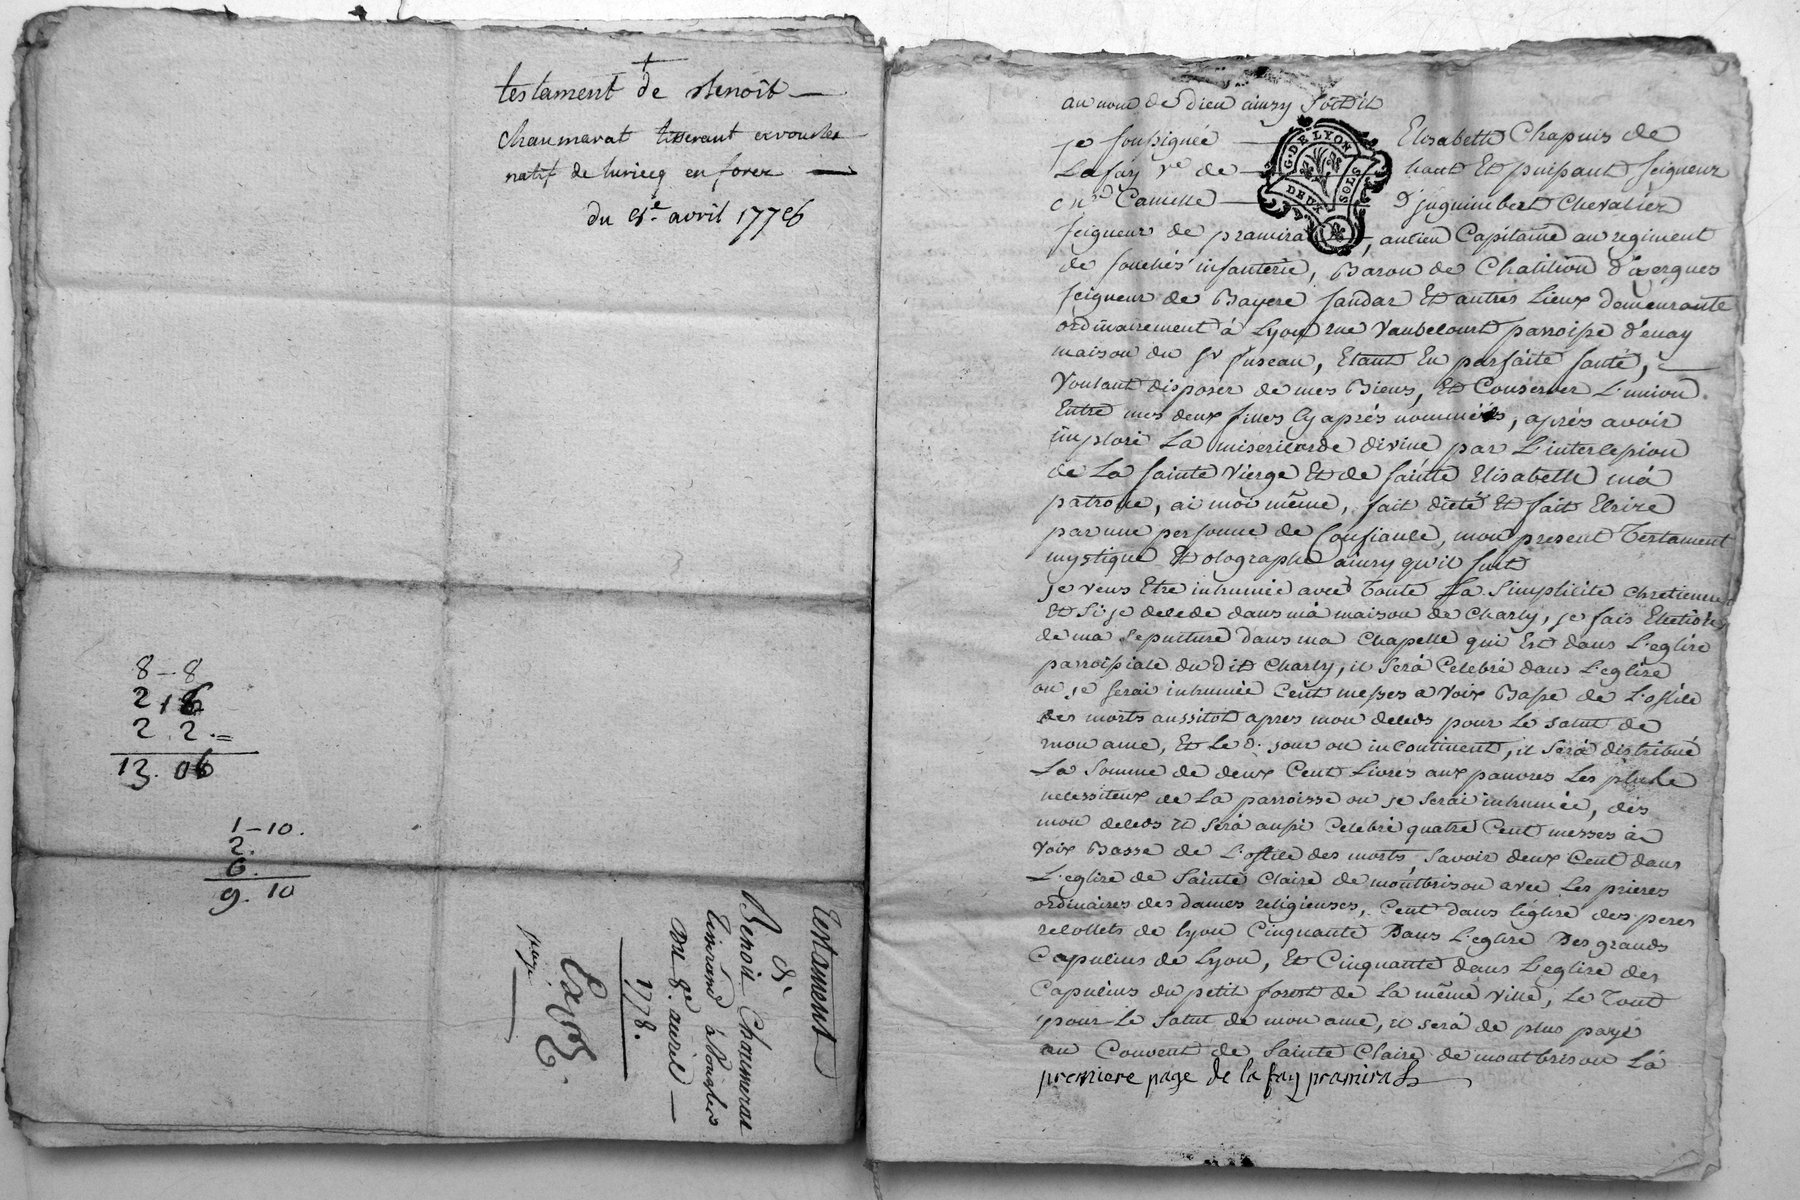 testament de Benoit
chaumerat tisserant
natif de luriecq en forez
du 8e. avril 1778
8-8
2 18
2. 2.=
13. 06
1-10.
2.
6.
9. 10
Testament
de
Benoit Chaumerat
tisserand à
Du 8e. avril
1778.
Exp.
payé
au nom de dieu ainsy soit il
je soussignée Elisabeth Chapuis de
Lafay ve de haut Et puissant seigneur
Camille D'juguimbert Chevalier
seigneur de pramiral, antien Capitaine au regiment
de infanterie, Baron de Chatillion d'asergues
seigneur de Bayere sandar Et autres Lieux demeurante
ordinairement à Lyon rue Vaubecourt parroisse d'enay
maison du sr fuseau, Etant En parfaite santé,
Voulant disposer de mes Biens, Et Conserver L'union
Entre mes deux filles Cy après nommées, après avoir
imploré La misericorde divine par L'intercession
de La sainte Vierge Et de sainte Elisabeth ma
patrone, ai moi même, fait dicté Et fait Ecrire
par une personne de Confiance, mon present Testament
mystique Et olographe ainsy qu'il suit
je veus Etre inhumée avec Toute La Simplicité chretienne
Et Si je decede dans ma maison de Charly, je fais Election
de ma sepulture dans ma Chapelle qui Est dans L'eglise
parroissiale du dit Charly, il Sera Celebré dans L'eglise
ou je serai inhumée Cent messes a voix Basse de L'office
des morts aussitot apres mon deceds pour Le salut de
mon ame, Et Le d. jour ou incontinent, il Sera distribué
La Somme de deux Cent Livres aux pauvres Les plus
necessiteux de La parroisse ou je serai inhumée, dés
mon deceds il Sera aussi Celebré quatre Cent messes à
Voix Basse de L'office des morts Savoir deux Cent dans
L'eglise de Sainte Claire de montbrison avec Les prieres
ordinaires des dames religieuses, Cent dans l'église des peres
recollets de lyon Cinquante Dans L'eglise Des grands
Capucins de Lyon, Et Cinquante dans L'eglise des
Capucins du petit forest de La même ville, Le Tout
pour Le Salut de mon ame, il sera de plus payé
au Couvent de Sainte Claire de montbrison La
premiere page de la fay pramiral
G. DE LYON
DEUX SOLS